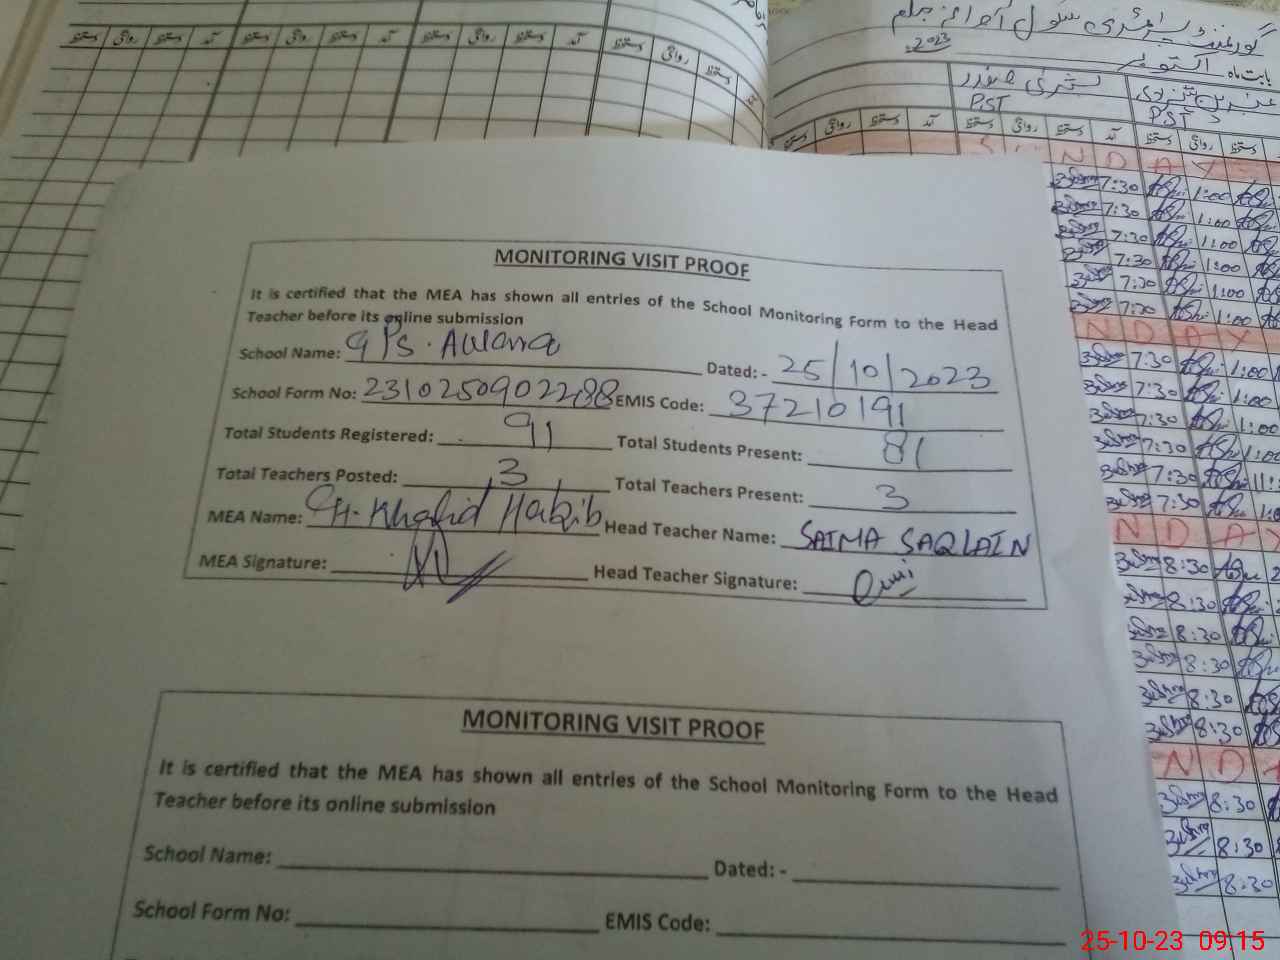 گورنمنٹ پرائمری سکول آوانہ جہلم
بابت ماہ اکتوبر 2023
PST
PST
دستخط روانگی دستخط آمد دستخط روانگی دستخط آمد دستخط روانگی دستخط آمد دستخط روانگی دستخط
روانگی دستخط آمد دستخط روانگی دستخط آمد دستخط روانگی دستخط
S U N D A Y
7:30 1:00
7:30 1:00
7:30 1:00
7:30 1:00
7:30 1:00
7:30 1:00
N D A Y
7:30 1:00
7:30 1:00
7:30 1:00
7:30 1:00
7:30 11:
7:30 1:0
N D A Y
8:30
8:30
8:30
8:30
8:30
8:30
N D A
8:30
8:30
8:30
MONITORING VISIT PROOF
It is certified that the MEA has shown all entries of the School Monitoring Form to the Head
Teacher before its online submission
School Name: GPS. Awana Dated: - 25/10/2023
School Form No: 2310250902288 EMIS Code: 37210191
Total Students Registered: 91 Total Students Present: 81
Total Teachers Posted: 3 Total Teachers Present: 3
MEA Name: CH. Khalid Habib Head Teacher Name: SAIMA SAQLAIN
MEA Signature: Head Teacher Signature:
MONITORING VISIT PROOF
It is certified that the MEA has shown all entries of the School Monitoring Form to the Head
Teacher before its online submission
School Name: Dated: -
School Form No: EMIS Code:
25-10-23 09:15